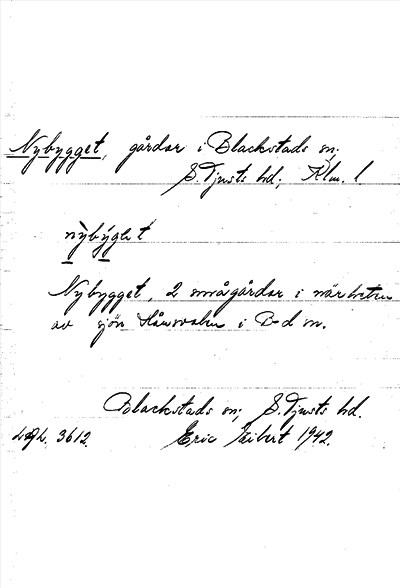 Nybygget, gårdar i Blackstads sn.
S. Tjusts hd, Klm. l.
nỳbýget
Nybygget, 2 smågårdar i närheten
av sjön i B-d sn.
Blackstads sn, S. Tjusts hd.
3612. Eric 1942.